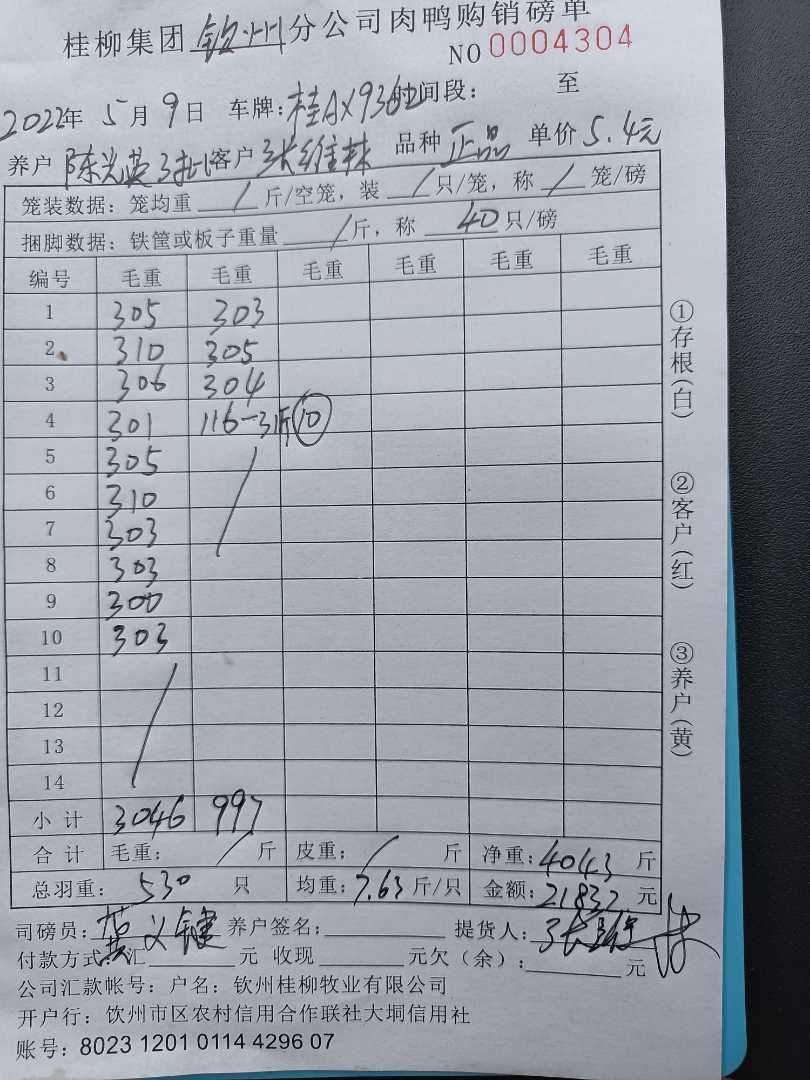 桂柳集团 钦州 分公司肉鸭购销磅单
NO 0004304
2022年 5月9日 车牌:桂AX9362 时间段: 至
养户 陈光英3批 客户 张维林 品种 正品 单价 5.4元
笼装数据:笼均重 / 斤/空笼,装 / 只/笼,称 / 笼/磅
捆脚数据:铁筐或板子重量 / 斤,称 40 只/磅
编号 毛重 毛重 毛重 毛重 毛重 毛重
1 305 303
2 310 305
3 306 304
4 301 116-3斤 ⑩
5 305
6 310
7 303
8 303
9 300
10 303
11
12
13
14
小计 3046 997
合计 毛重: / 斤 皮重: / 斤 净重:4043 斤
总羽重: 530 只 均重:7.63 斤/只 金额:21832 元
司磅员: 黄义健 养户签名: 提货人:
付款方式:汇 元 收现 元欠(余): 元
公司汇款帐号:户名:钦州桂柳牧业有限公司
开户行:钦州市区农村信用合作联社大垌信用社
账号:8023 1201 0114 4296 07
①存根(白)
②客户(红)
③养户(黄)